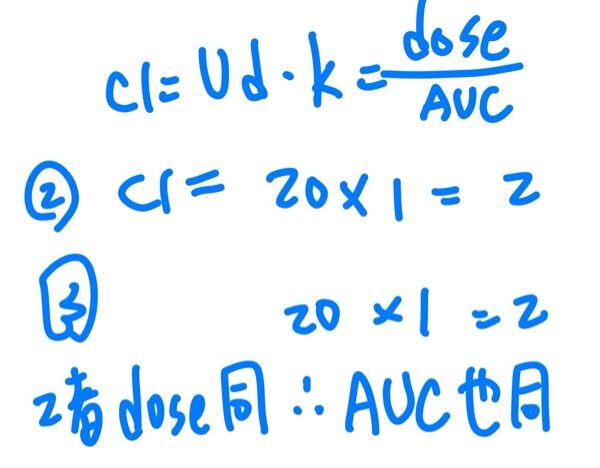 Cl = Vd · k = dose / AUC
② Cl = 20 × 1 = 2
③ 20 × 1 = 2
2者 dose 同 ∴ AUC 也同